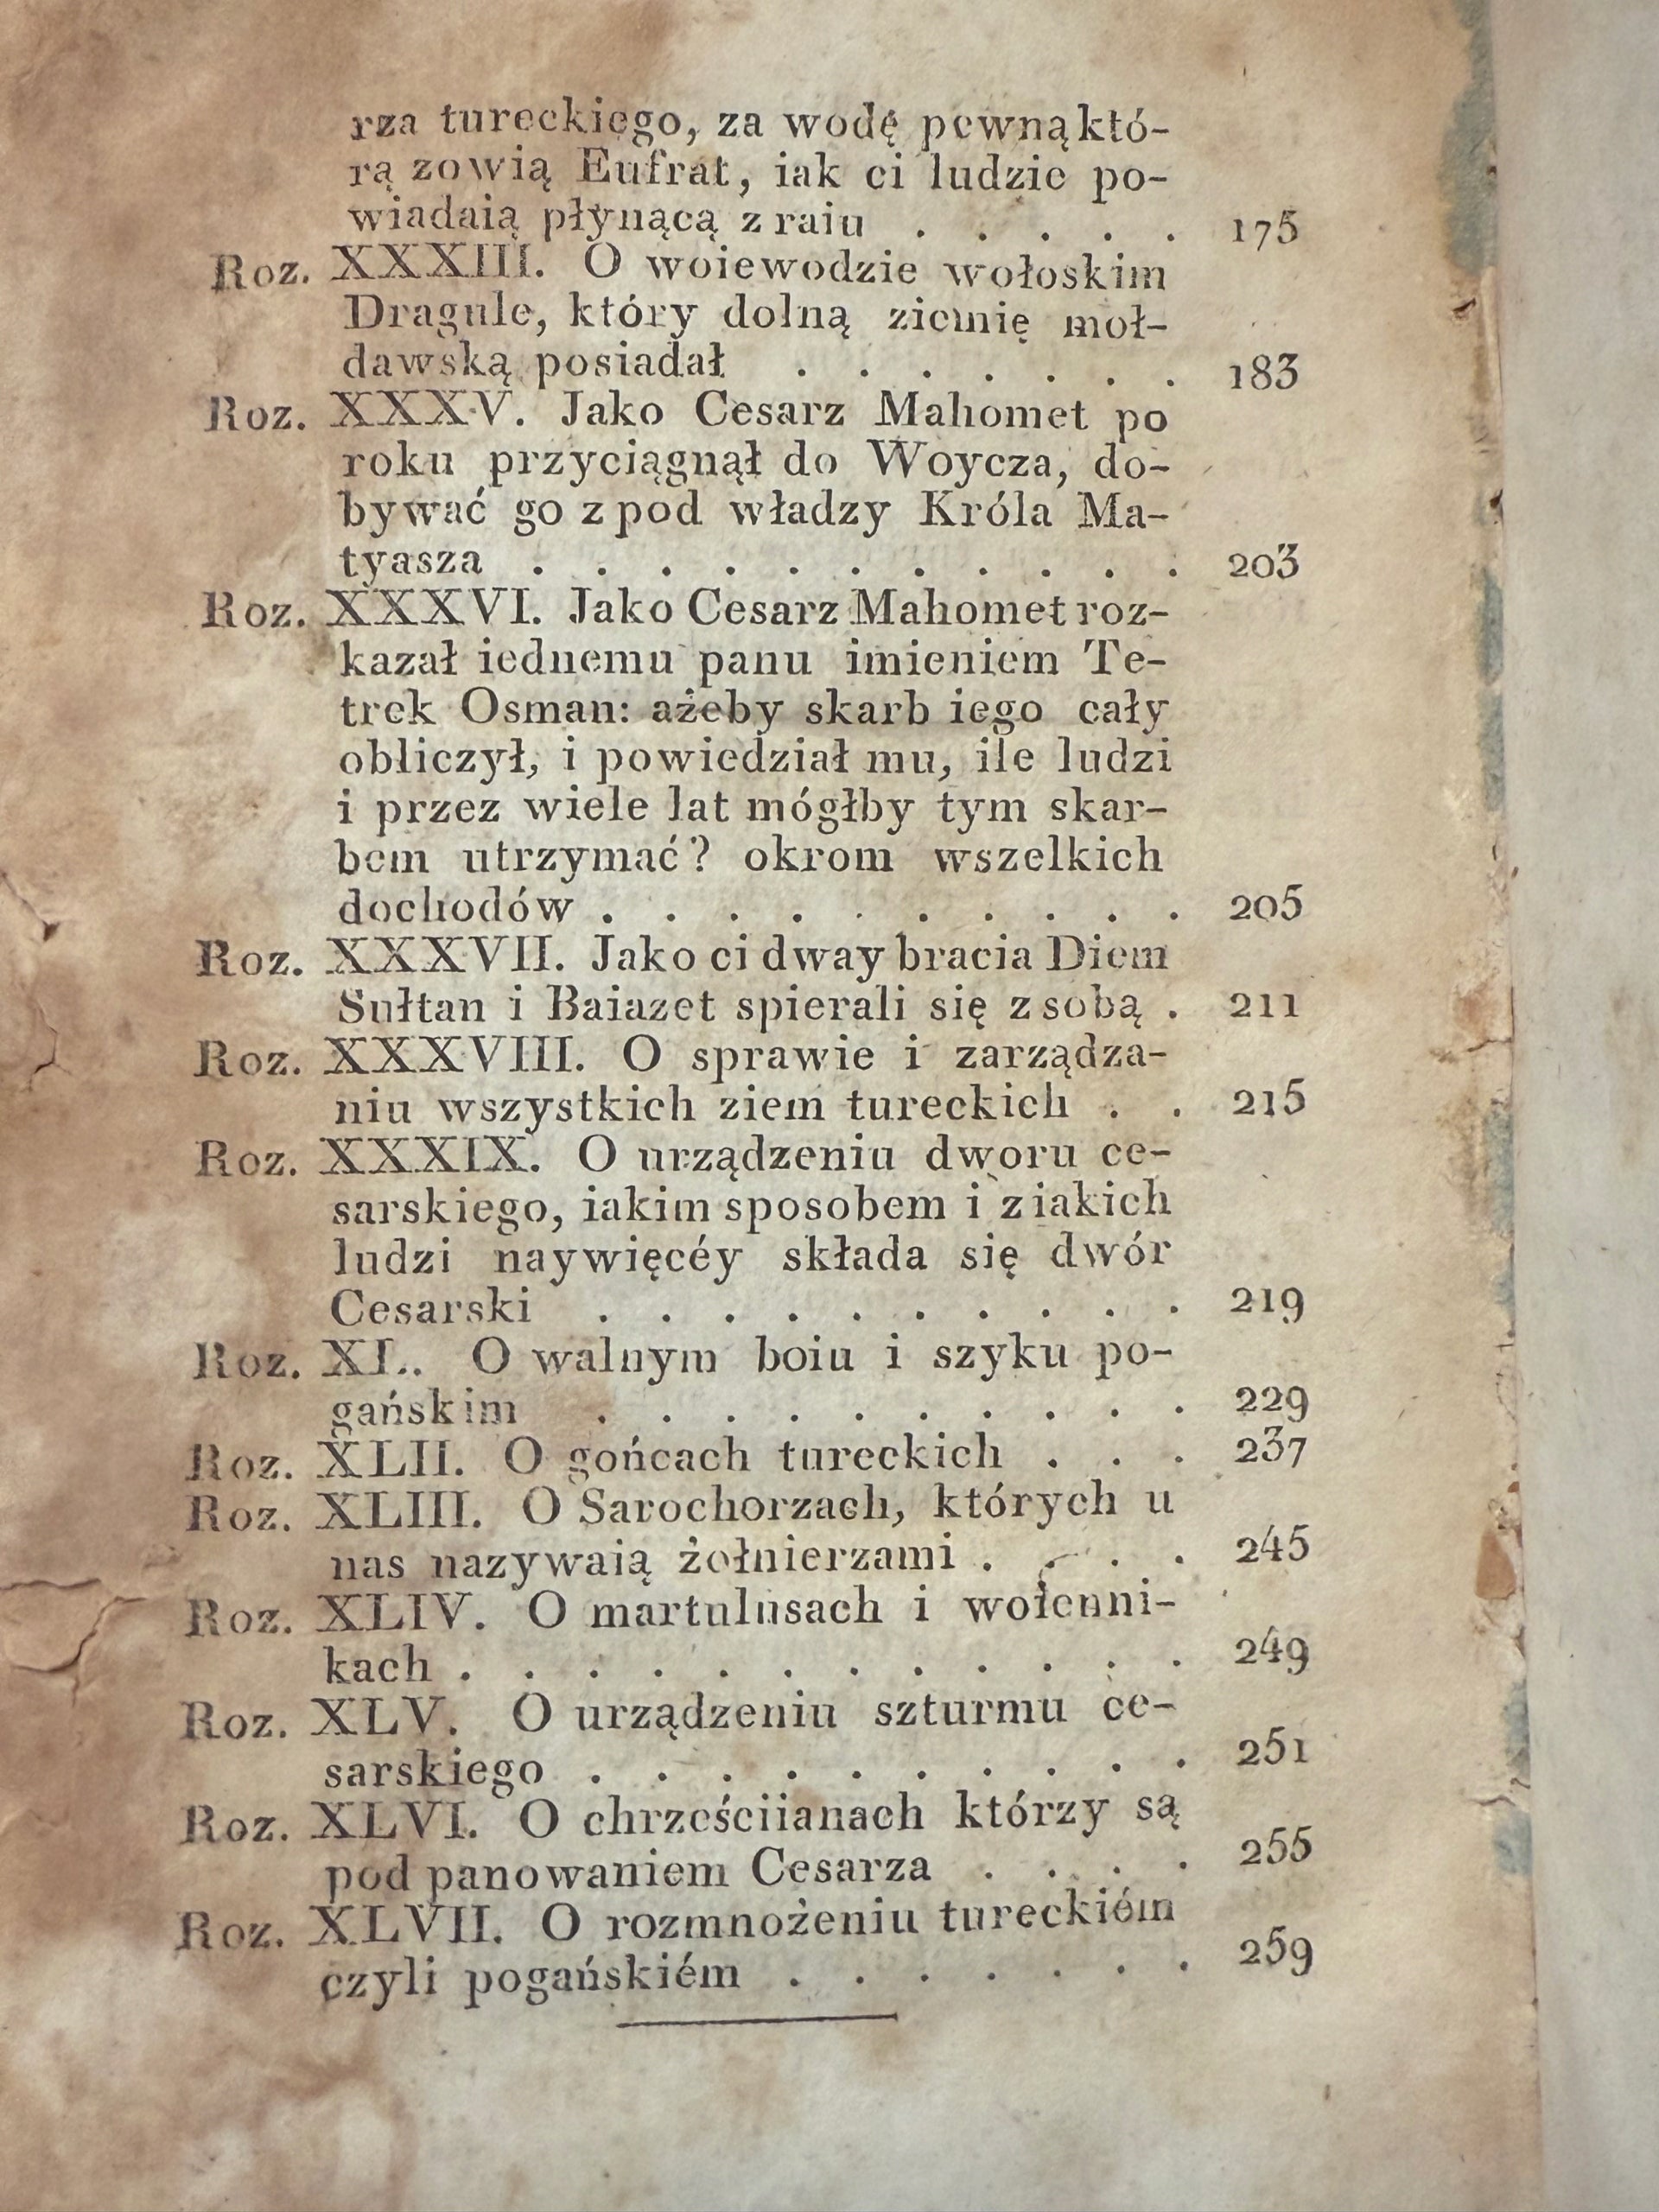 rza tureckiego, za wodę pewną któ-
rą zowią Eufrat, iak ci ludzie po-
wiadaią płynącą z raiu . . . . . 175
Roz. XXXIII. O woiewodzie wołoskim
Dragule, który dolną ziemię moł-
dawską posiadał . . . . . . . 183
Roz. XXXV. Jako Cesarz Mahomet po
roku przyciągnął do Woycza, do-
bywać go z pod władzy Króla Ma-
tyasza . . . . . . . . . . . 203
Roz. XXXVI. Jako Cesarz Mahomet roz-
kazał iednemu panu imieniem Te-
trek Osman: ażeby skarb iego cały
obliczył, i powiedział mu, ile ludzi
i przez wiele lat mógłby tym skar-
bem utrzymać? okrom wszelkich
dochodów . . . . . . . . . . 205
Roz. XXXVII. Jako ci dway bracia Diem
Sułtan i Baiazet spierali się z sobą . 211
Roz. XXXVIII. O sprawie i zarządza-
niu wszystkich ziem tureckich . . 215
Roz. XXXIX. O urządzeniu dworu ce-
sarskiego, iakim sposobem i z iakich
ludzi naywięcéy składa się dwór
Cesarski . . . . . . . . . . 219
Roz. XL. O walnym boiu i szyku po-
gańskim . . . . . . . . . . 229
Roz. XLII. O gońcach tureckich . . . 237
Roz. XLIII. O Sarochorzach, których u
nas nazywaią żołnierzami . . . . 245
Roz. XLIV. O martulusach i woienni-
kach . . . . . . . . . . . . 249
Roz. XLV. O urządzeniu szturmu ce-
sarskiego . . . . . . . . . . 251
Roz. XLVI. O chrześciianach którzy są
pod panowaniem Cesarza . . . . 255
Roz. XLVII. O rozmnożeniu tureckiém
czyli pogańskiém . . . . . . . 259